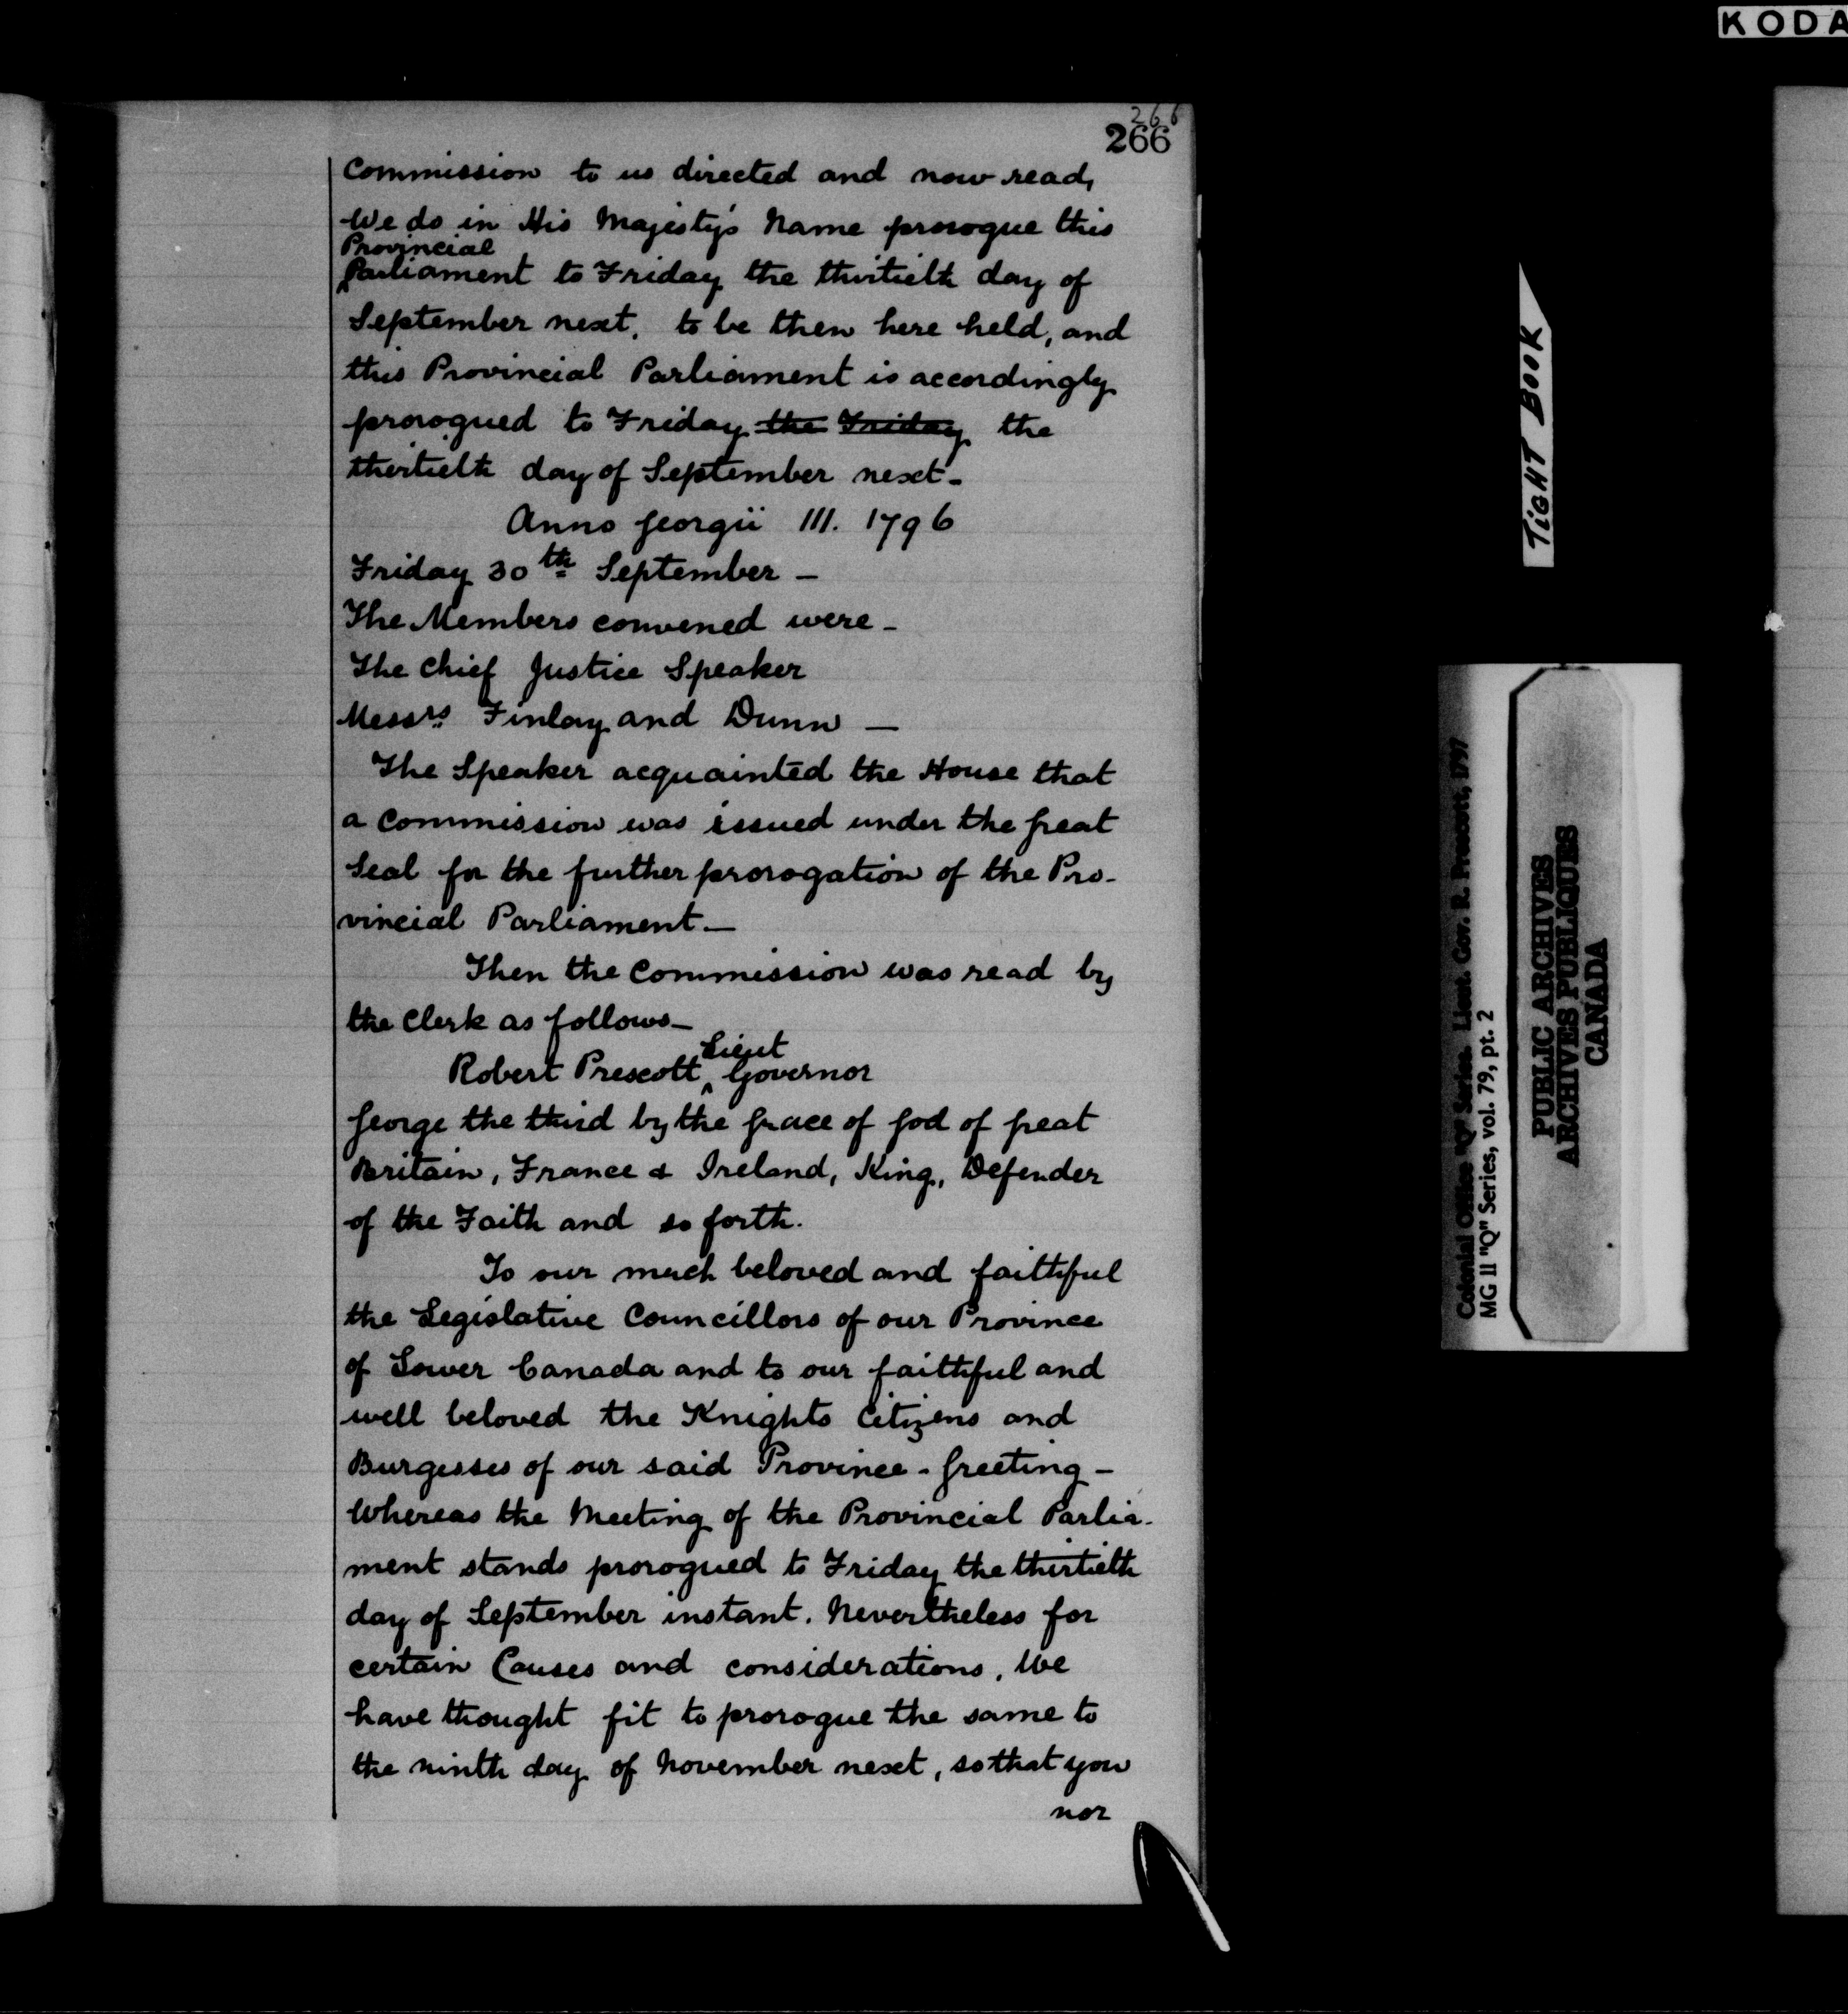 KODA
266
266
Commission to us directed and now read,
We do in His Majesty's Name prorogue this
Provincial
Parliament to Friday the thirtieth day of
September next, to be then here held, and
this Provincial Parliament is accordingly
prorogued to Friday the Friday the
thirtieth day of September next -
Anno Georgii III. 1796
Friday 30th September -
The Members convened were -
The Chief Justice Speaker
Messrs Finlay and Dunn -
The Speaker acquainted the House that
a Commission was issued under the Great
Seal for the further prorogation of the Pro-
vincial Parliament -
Then the Commission was read by
the Clerk as follows -
Lieut
Robert Prescott, ^ Governor
George the third by the Grace of God of Great
Britain, France & Ireland, King, Defender
of the Faith and so forth.
To our much beloved and faithful
the Legislative Councillors of our Province
of Lower Canada and to our faithful and
well beloved the Knights Citizens and
Burgesses of our said Province - Greeting -
Whereas the Meeting of the Provincial Parlia-
ment stands prorogued to Friday the thirtieth
day of September instant. Nevertheless for
certain Causes and considerations, We
have thought fit to prorogue the same to
the ninth day of November next, so that you
nor
TIGHT BOOK
Colonial Office "Q" Series. Lieut. Gov. R. Prescott, 1797
MG 11 "Q" Series, vol. 79, pt. 2
PUBLIC ARCHIVES
ARCHIVES PUBLIQUES
CANADA